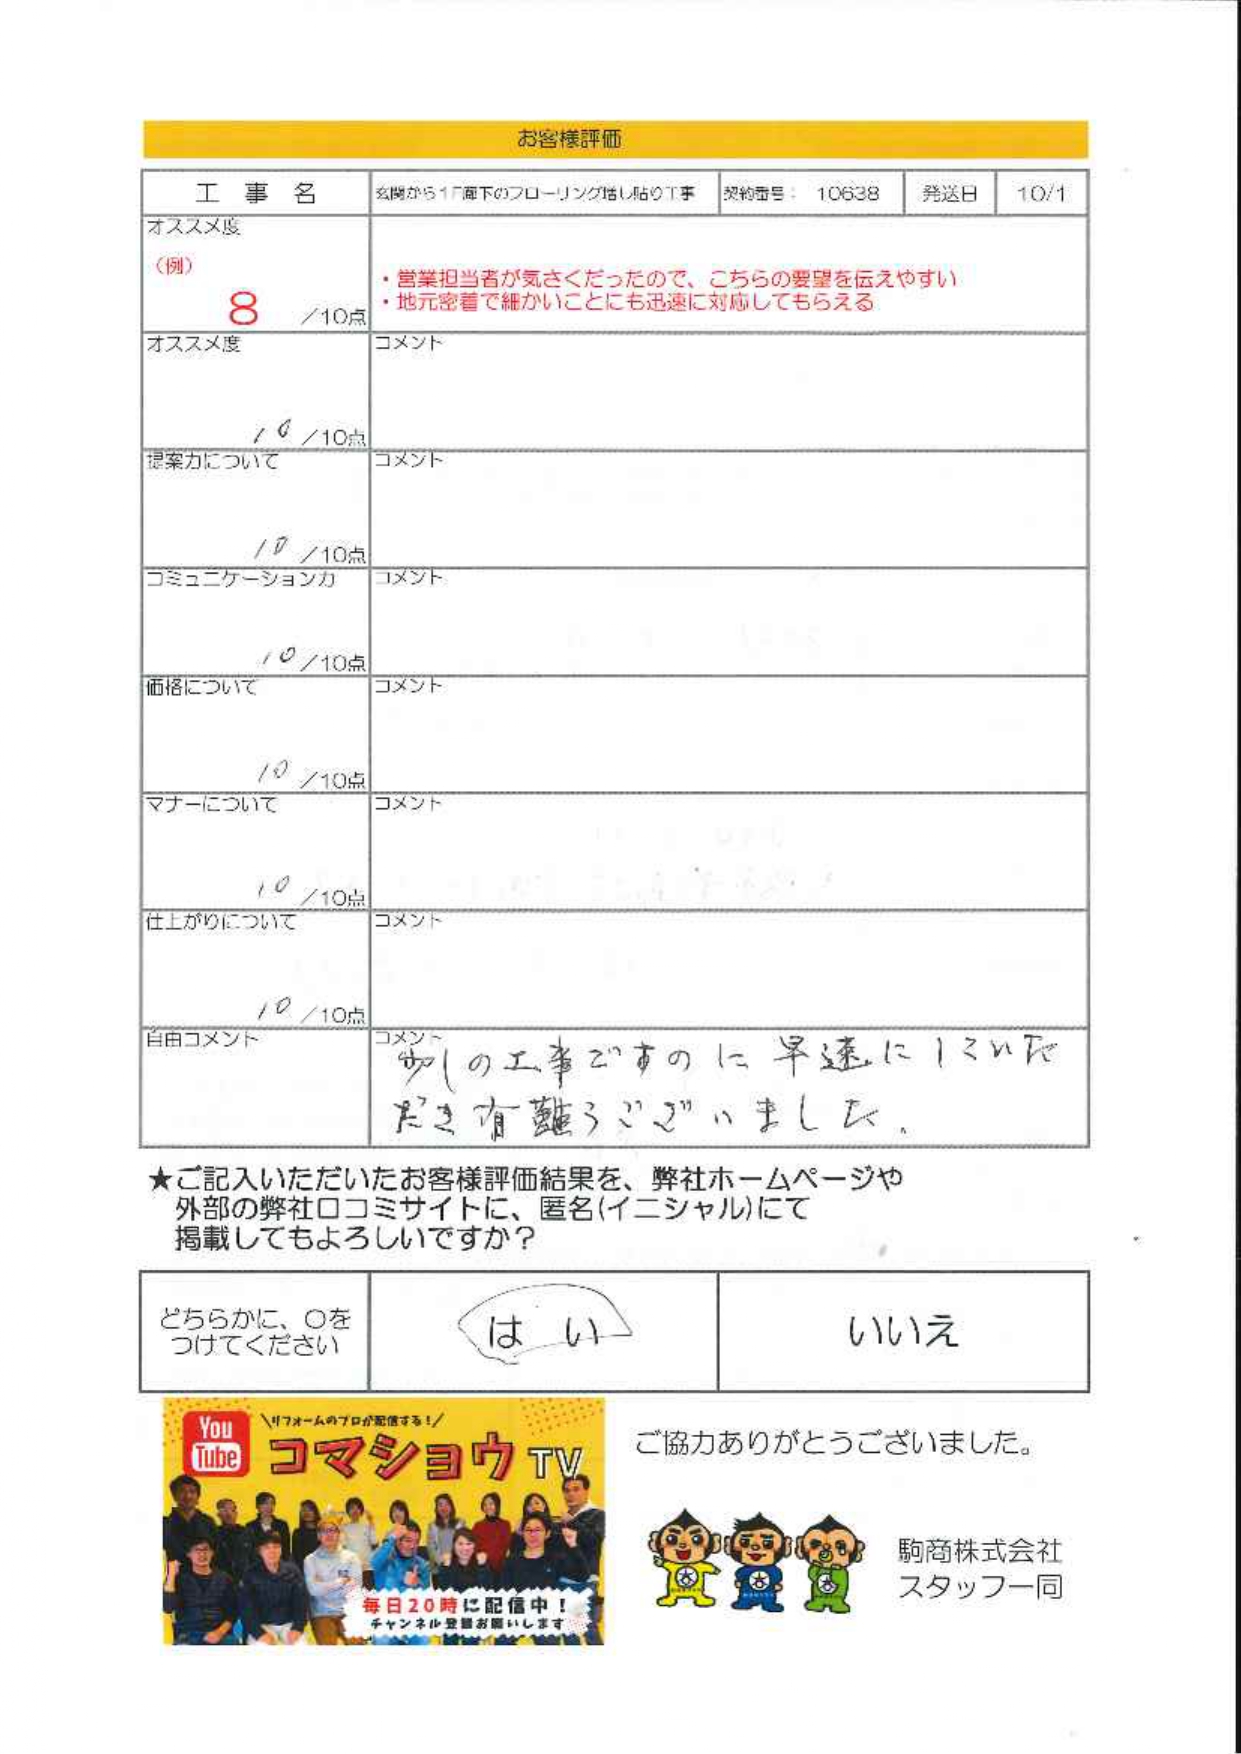 お客様評価
工事名 玄関から1F廊下のフローリング増し貼り工事 契約番号： 10638 発送日 10/1
オススメ度
（例）
8 ／10点
・営業担当者が気さくだったので、こちらの要望を伝えやすい
・地元密着で細かいことにも迅速に対応してもらえる
オススメ度 コメント
10 ／10点
提案力について コメント
10 ／10点
コミュニケーション力 コメント
10 ／10点
価格について コメント
10 ／10点
マナーについて コメント
10 ／10点
仕上がりについて コメント
10 ／10点
自由コメント コメント
少しの工事ですのに早速にしていた
だき有難うございました。
★ご記入いただいたお客様評価結果を、弊社ホームページや
外部の弊社口コミサイトに、匿名(イニシャル)にて
掲載してもよろしいですか？
どちらかに、〇を
つけてください
はい いいえ
You Tube
\リフォームのプロが配信する！/
コマショウTV
毎日20時に配信中！
チャンネル登録お願いします
ご協力ありがとうございました。
駒商株式会社
スタッフ一同